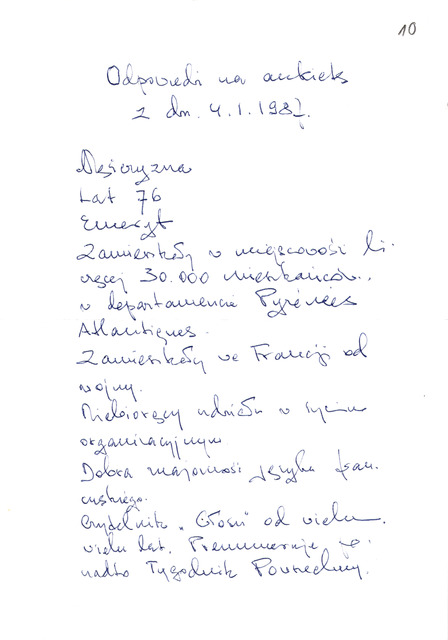 10
Odpowiedź na ankietę
z dn. 4.1.1987.
Mężczyzna
Lat 76
Emeryt
Zamieszkały w miejscowości li-
czącej 30.000 mieszkańców,
w departamencie Pyrénées
Atlantiques.
Zamieszkały we Francji od
wojny.
Niebiorący udziału w życiu
organizacyjnym.
Dobra znajomość języka fran-
cuskiego.
Czytelnik "Głosu" od wielu,
wielu lat. Prenumeruje po-
nadto Tygodnik Powszechny.